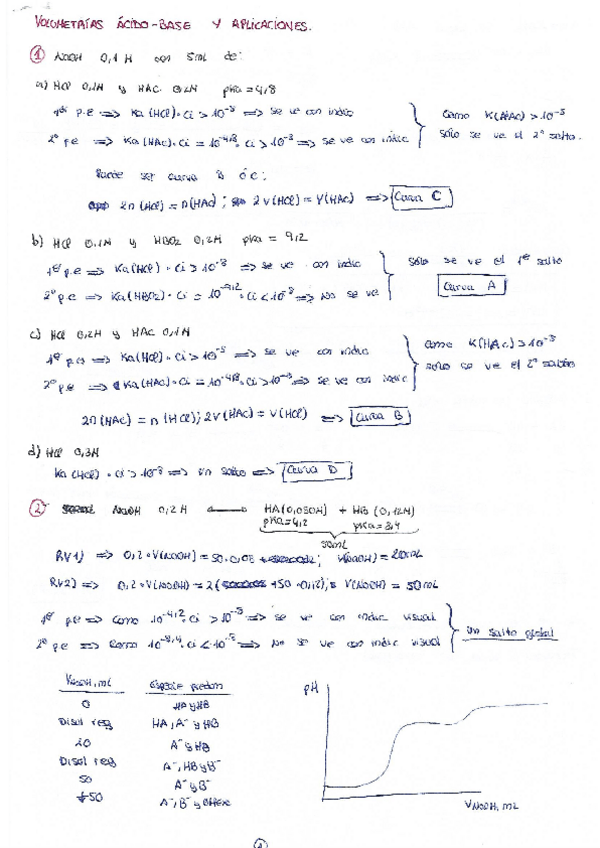 VOLUMETRÍAS ÁCIDO-BASE Y APLICACIONES.
① NaOH 0,1M con 5mL de:
a) HCl 0,1N y HAc 0,2N pKa = 4,8
1er p.e => Ka(HCl)·Ci > 10⁻⁸ => Se ve con indic
2º p.e => Ka(HAc)·Ci = 10⁻⁴'⁸·Ci > 10⁻⁸ => se ve con indic
Como K(HAc) > 10⁻⁵
sólo se ve el 2º salto.
Puede ser curva B ó C:
2n(HCl) = n(HAc); 2V(HCl) = V(HAc) => Curva C
b) HCl 0,1N y HBO₂ 0,2M pKa = 9,2
1er p.e => Ka(HCl)·Ci > 10⁻⁸ => se ve con indic
2º p.e => Ka(HBO₂)·Ci = 10⁻⁹'²·Ci < 10⁻⁸ => No se ve
sólo se ve el 1er salto
Curva A
c) HCl 0,2M y HAc 0,1N
1er p.e => Ka(HCl)·Ci > 10⁻⁸ => se ve con indic
2º p.e => Ka(HAc)·Ci = 10⁻⁴'⁸·Ci > 10⁻⁸ => se ve con indic
Como K(HAc) > 10⁻⁵
sólo se ve el 2º salto
2n(HAc) = n(HCl); 2V(HAc) = V(HCl) => Curva B
d) HCl 0,3M
Ka(HCl)·Ci > 10⁻⁸ => un salto => Curva D
② NaOH 0,2M HA(0,080M) + HB(0,12M)
pKa=4,2 pKa=8,4
50mL
RV1) => 0,2·V(NaOH) = 50·0,08; V(NaOH) = 20mL
RV2) => 0,2·V(NaOH) = +50·0,12); V(NaOH) = 50mL
1er p.e => Como 10⁻⁴'²·Ci > 10⁻⁸ => se ve con indic visual
2º p.e => Como 10⁻⁸'⁴·Ci < 10⁻⁸ => No se ve con indic visual
Un salto global
VNaOH, mL Especie predom
0 HA y HB
Disol reg HA, A⁻ y HB
20 A⁻ y HB
Disol reg A⁻, HB y B⁻
50 A⁻ y B⁻
>50 A⁻, B⁻ y OH⁻exc
pH
VNaOH, mL
1